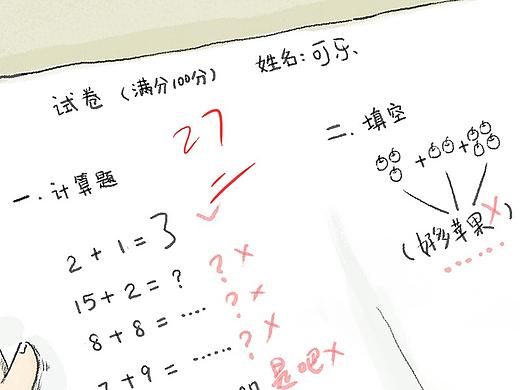 试卷（满分100分） 姓名：可乐、
27
一.计算题
2+1=3
15+2=? ?×
8+8=.... ?×
+9=...... ?×
是吧×
二.填空
+ +
(好多苹果×)
......